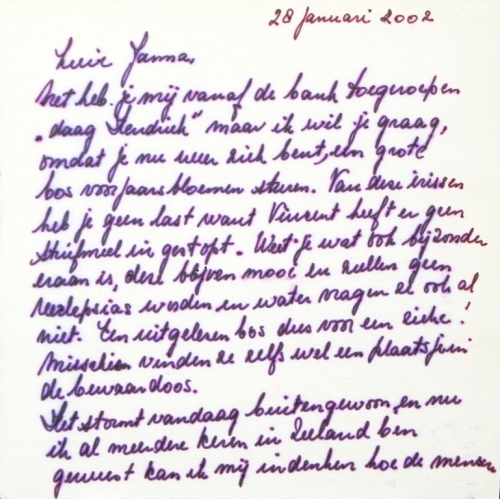 28 Januari 2002
Lieve Janna,
Net heb je mij vanaf de bank toegeroepen
„daag Hendrick" maar ik wil je graag,
omdat je nu weer ziek bent, een grote
bos voorjaarsbloemen sturen. Van deze irissen
heb je geen last want Vincent heeft er geen
stuifmeel in gestopt. Weet je wat ook bijzonder
eraan is, deze blijven mooi en zullen geen
worden en water vragen ze ook al
niet. Een uitgelezen bos dus voor een zieke!
Misschien vinden ze zelfs wel een plaatsje in
de bewaardoos.
Het stormt vandaag buitengewoon, en nu
ik al meerdere keren in Zeeland ben
geweest kan ik mij indenken hoe de mensen